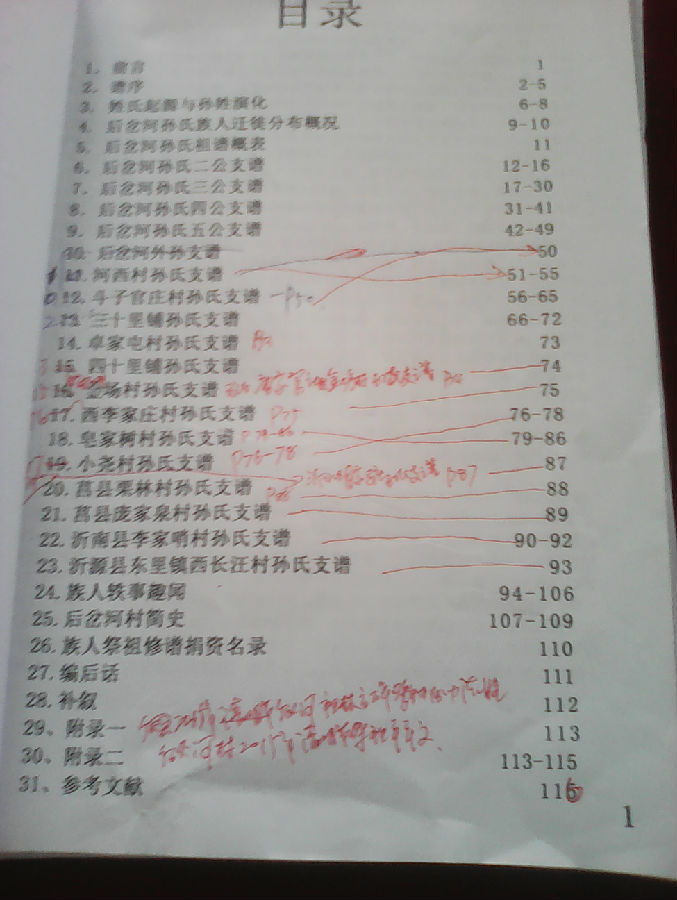 目录
1、前言 1
2、谱序 2-5
3、姓氏起源与孙姓演化 6-8
4、后岔河孙氏族人迁徙分布概况 9-10
5、后岔河孙氏祖谱概表 11
6、后岔河孙氏二公支谱 12-16
7、后岔河孙氏三公支谱 17-30
8、后岔河孙氏四公支谱 31-41
9、后岔河孙氏五公支谱 42-49
10、后岔河外孙支谱 50
11、河西村孙氏支谱 51-55
12、斗子官庄村孙氏支谱 P50 56-65
13、三十里铺孙氏支谱 66-72
14、卓家屯村孙氏支谱 73
15、四十里铺孙氏支谱 74
16、场村孙氏支谱 75
17、西李家庄村孙氏支谱 P75 76-78
18、皂家树村孙氏支谱 79-86
19、小尧村孙氏支谱 P76-78 87
20、莒县栗林村孙氏支谱 P87 88
21、莒县庞家泉村孙氏支谱 89
22、沂南县李家哨村孙氏支谱 90-92
23、沂源县东里镇西长汪村孙氏支谱 93
24、族人轶事趣闻 94-106
25、后岔河村简史 107-109
26、族人祭祖修谱捐资名录 110
27、编后话 111
28、补叙 112
29、附录一 113
30、附录二 113-115
31、参考文献 116
1